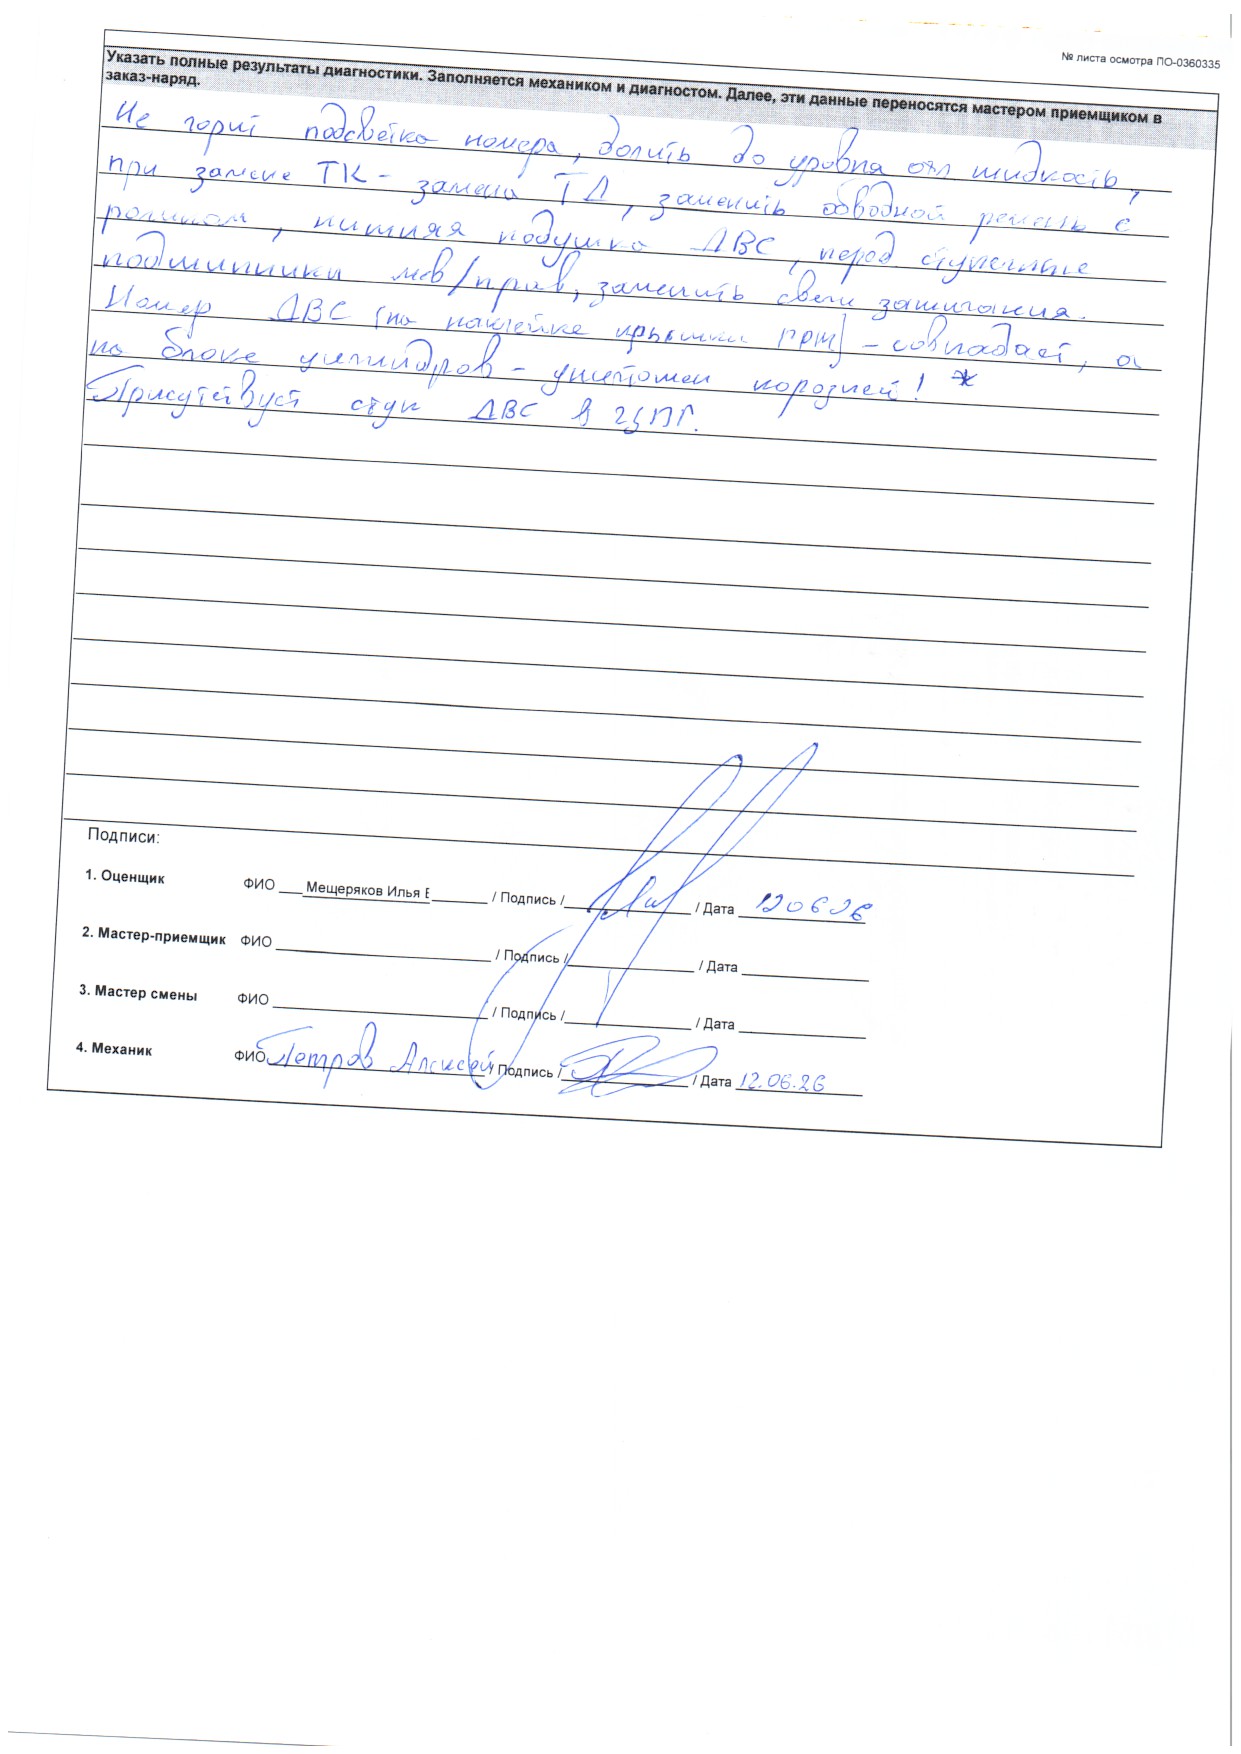 № листа осмотра ПО-0360335
Указать полные результаты диагностики. Заполняется механиком и диагностом. Далее, эти данные переносятся мастером приемщиком в
заказ-наряд.
Не горит подсветка номера, долить до уровня охл жидкость,
при замене ТК - замена ТД, заменить обводной ремень с
роликом, нижняя подушка ДВС, перед ступичные
подшипники лев/прав, заменить свечи зажигания.
Номер ДВС (на наклейке крышки ГРМ) - совпадает, а
на блоке цилиндров - уничтожен корозией! *
Присутствует стук ДВС в ЦПГ.
Подписи:
1. Оценщик ФИО Мещеряков Илья Е / Подпись / / Дата 120626
2. Мастер-приемщик ФИО / Подпись / / Дата
3. Мастер смены ФИО / Подпись / / Дата
4. Механик ФИО Петров Алексей / Подпись / / Дата 12.06.26